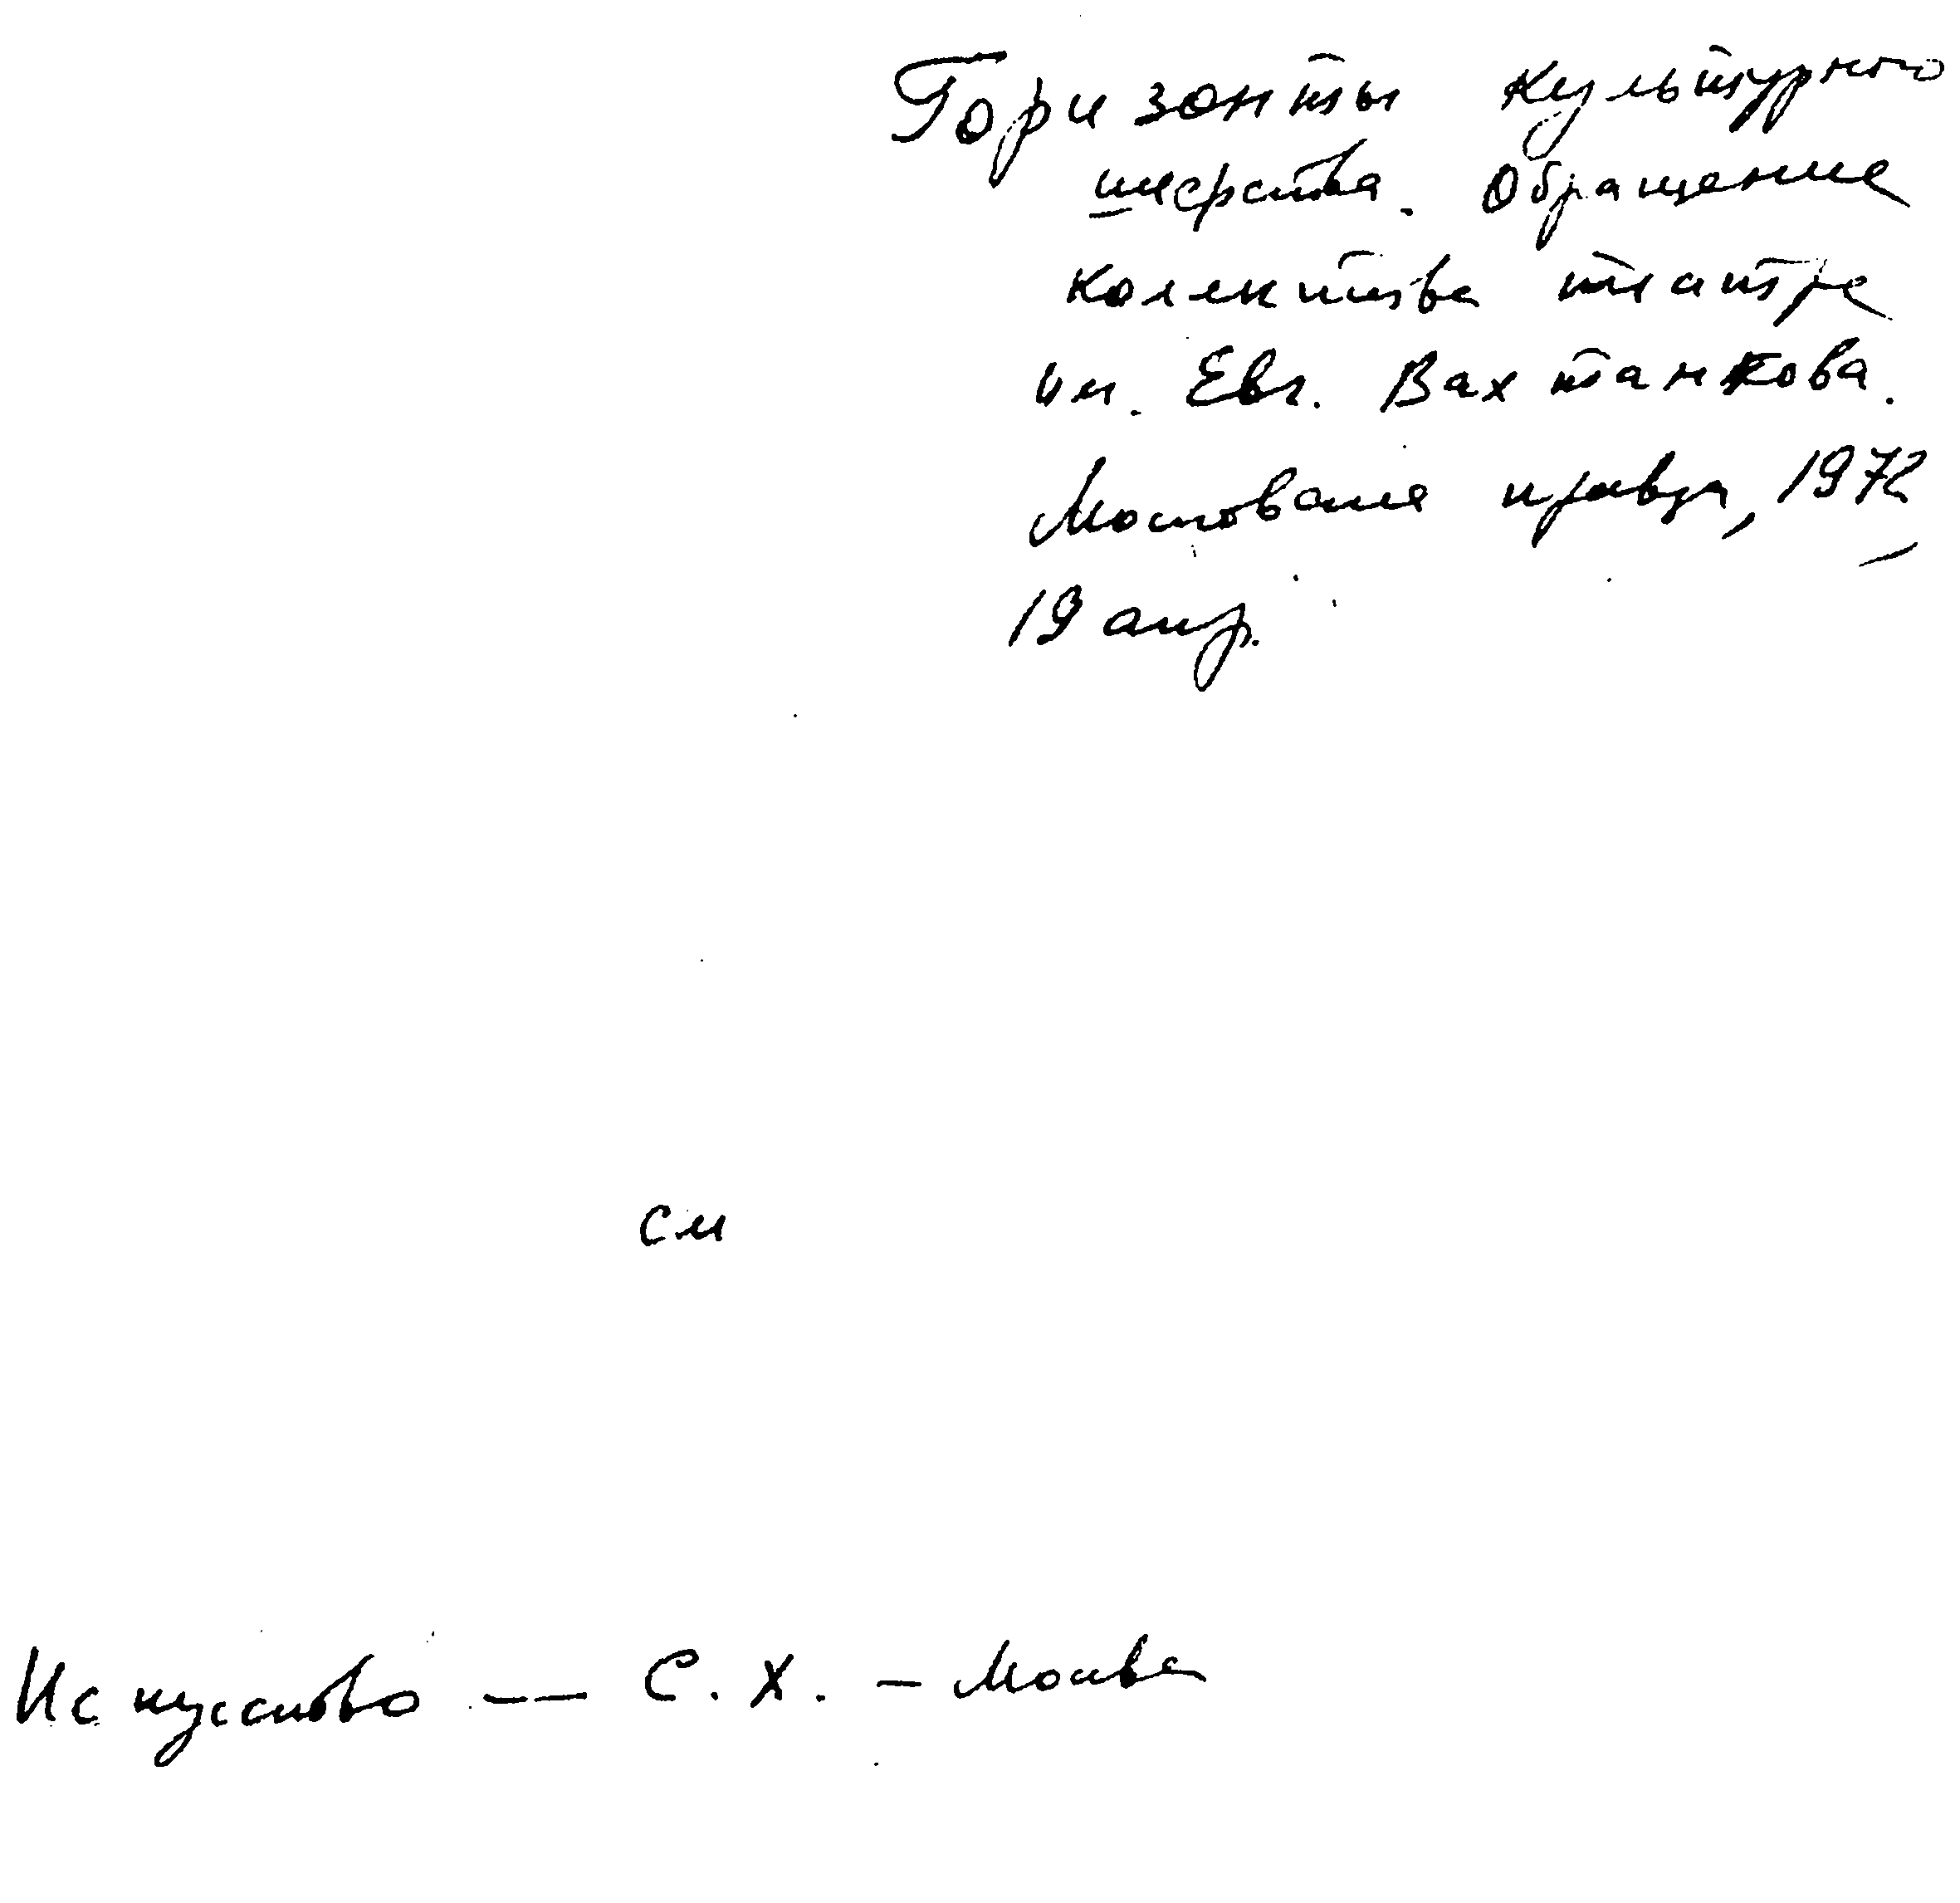 Горизонты культурного
шефства. Обращение
коллектива театра
им. Евг. Вахтангова.
Московская правда, 1972
19 апр.
см
Искусство — С. Х. — Москва